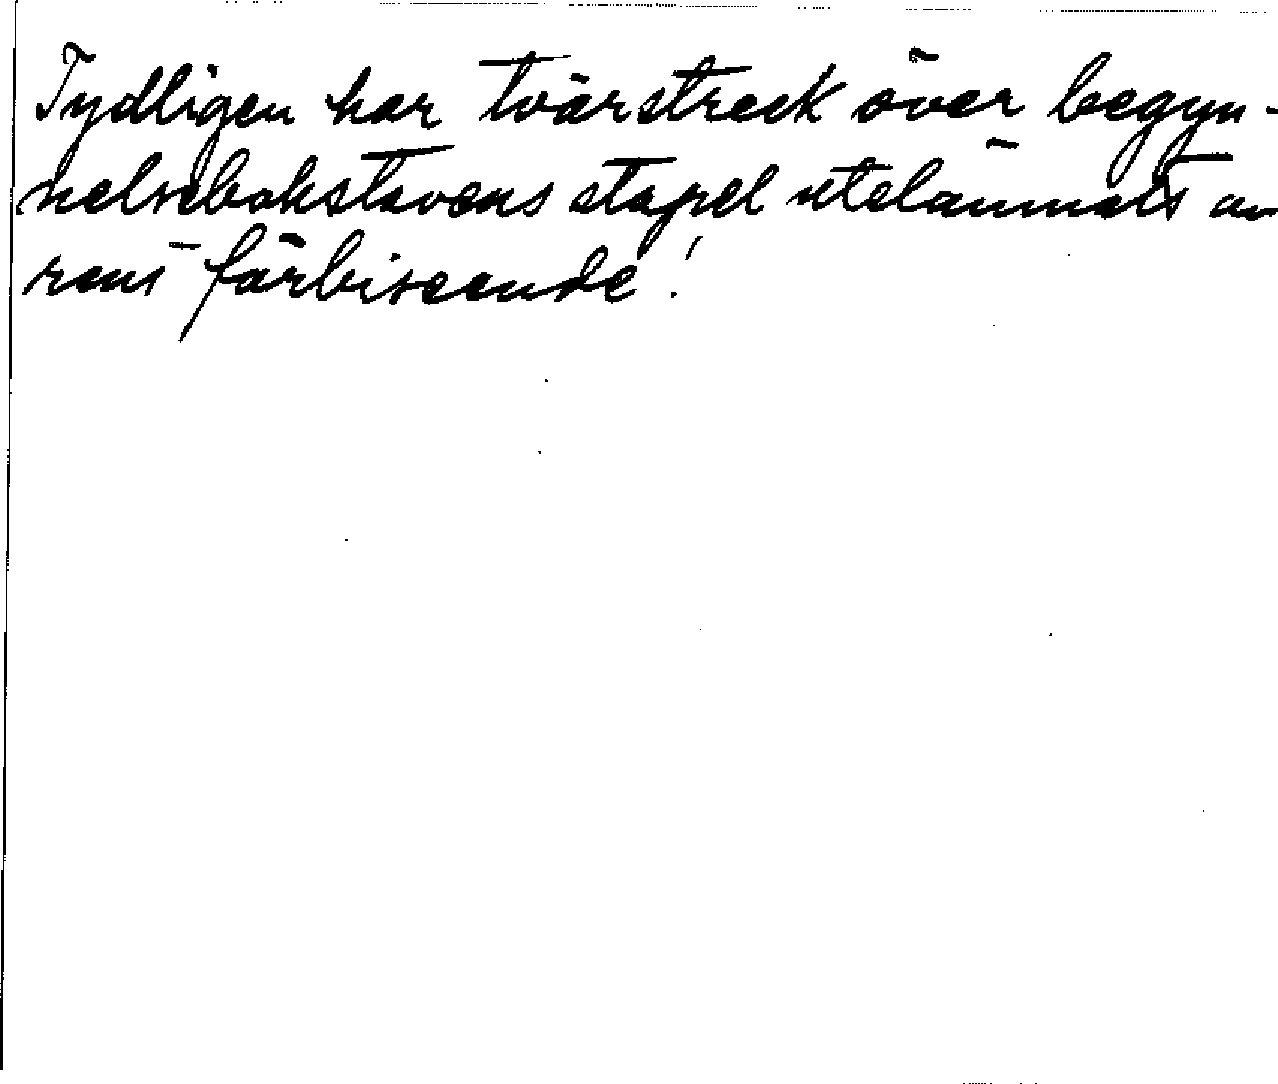 Tydligen har tvärstreck över begyn-
nelsebokstavens stapel utelämnats av
rent förbiseende!